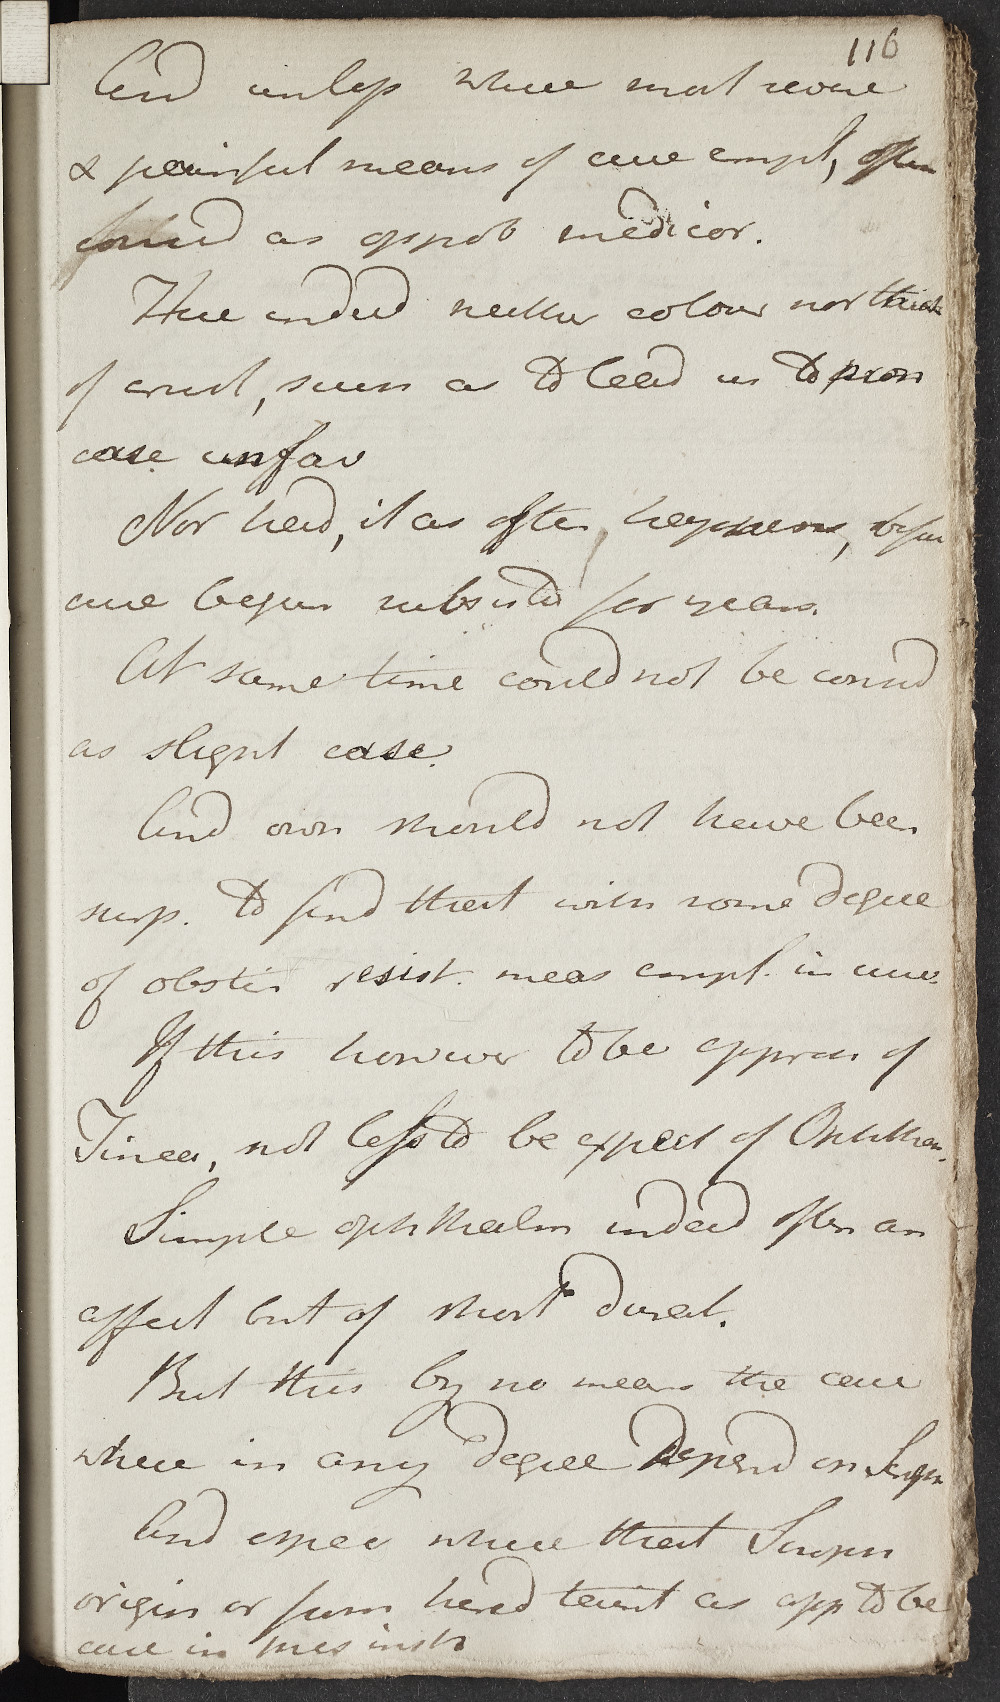 116
And unless where most severe
& painful means of cure empl, often
found as opprob medicor.
Here indeed neither colour nor thick
of crust, such as to lead us to pron
case unfav
Nor had, it as often happens, before
cure begun subsisted for years.
At same time could not be consid
as slight case.
And own should not have been
surp. to find that with some degree
of obstin resist. meas empl. in cure.
If this however to be appreh of
Tinea, not less to be expect of Ophthal.
Simple ophthalm indeed often an
affect but of short durat.
But this by no means the case
where in any degree depend on Scroph
And espec where that Scroph
origin or from hered taint as app to be
case in pres inst